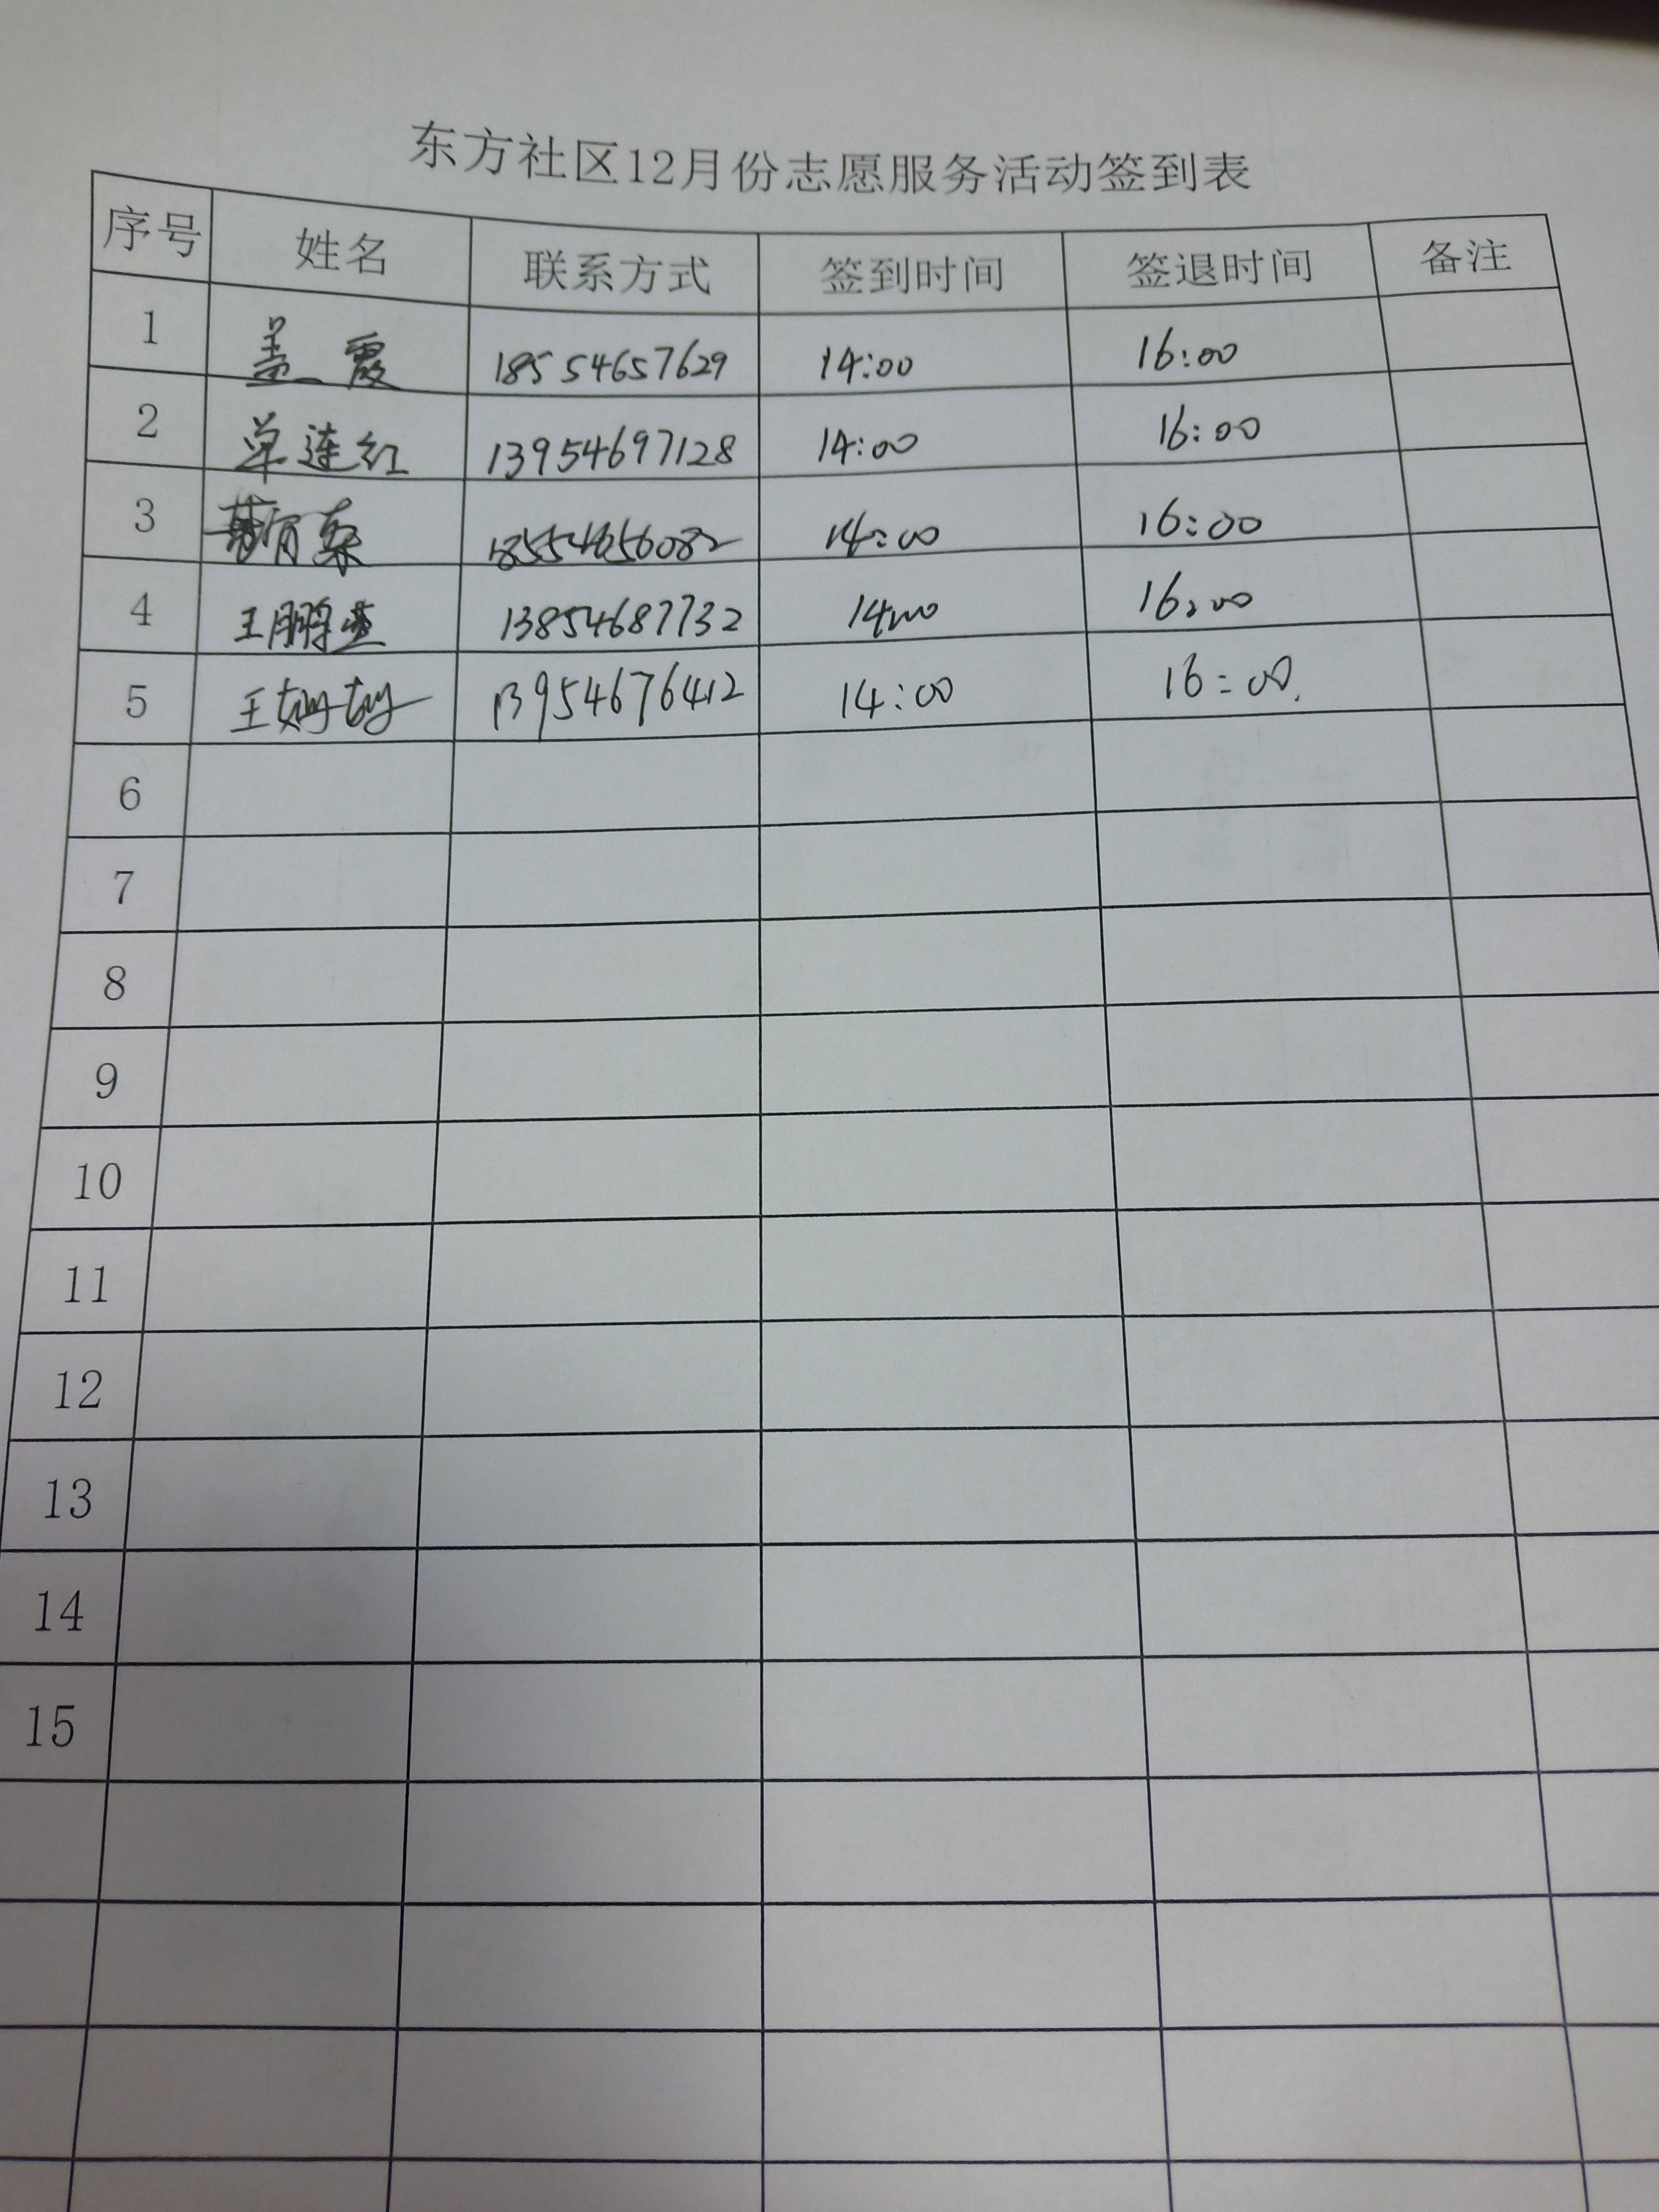 东方社区12月份志愿服务活动签到表
序号 姓名 联系方式 签到时间 签退时间 备注
1 盖霞 18554657629 14:00 16:00
2 单连红 13954697128 14:00 16:00
3 18554656082 14:00 16:00
4 王鹏 13854687732 14:00 16:00
5 王 13954676412 14:00 16:00
6
7
8
9
10
11
12
13
14
15